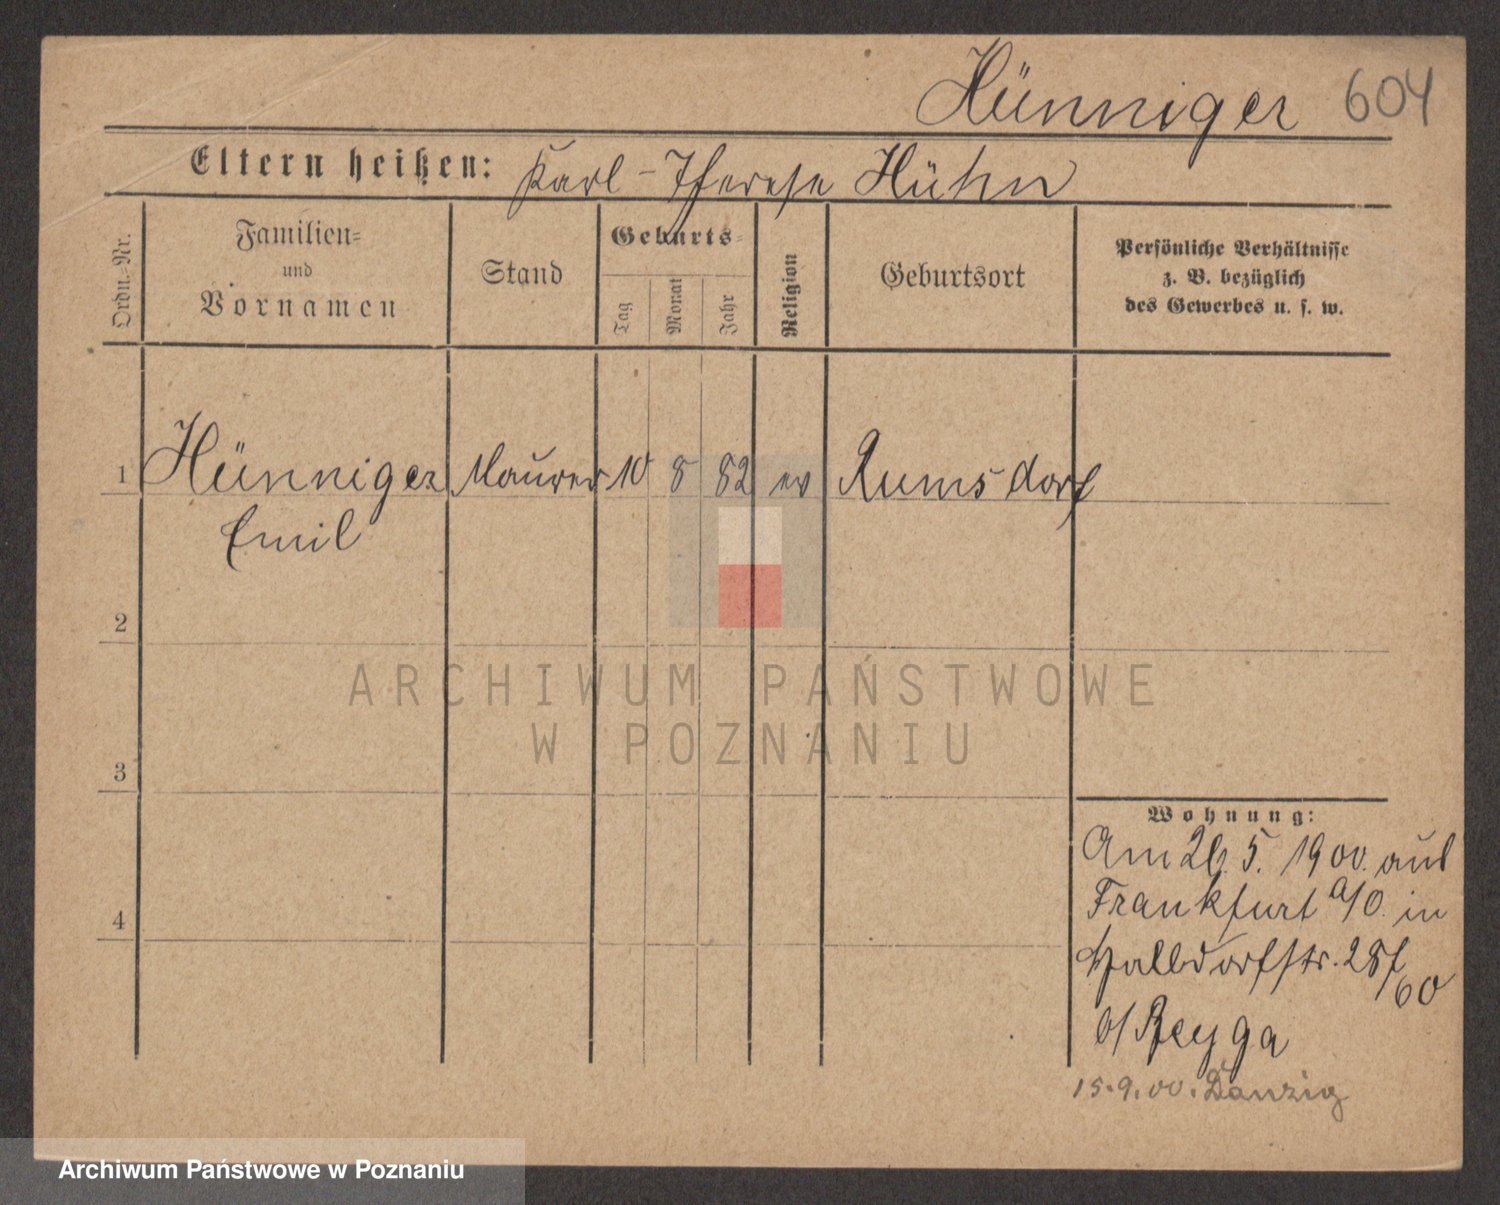 Hünniger 604
Eltern heißen: Karl - Therese Hühn
Ordn.-Nr.
Familien-
und
Vornamen
Stand
Geburts-
Tag
Monat
Jahr
Religion
Geburtsort
Persönliche Verhältnisse
z. B. bezüglich
des Gewerbes u. s. w.
1 Hünniger Maurer 10 8 82 ev Rumsdorf
Emil
2
3
4
ARCHIWUM PAŃSTWOWE
W POZNANIU
Wohnung:
Am 26.5. 1900. aus
Frankfurt a/O. in
Halbdorfstr. 28f
/60
b/
15.9.00. Danzig
Archiwum Państwowe w Poznaniu